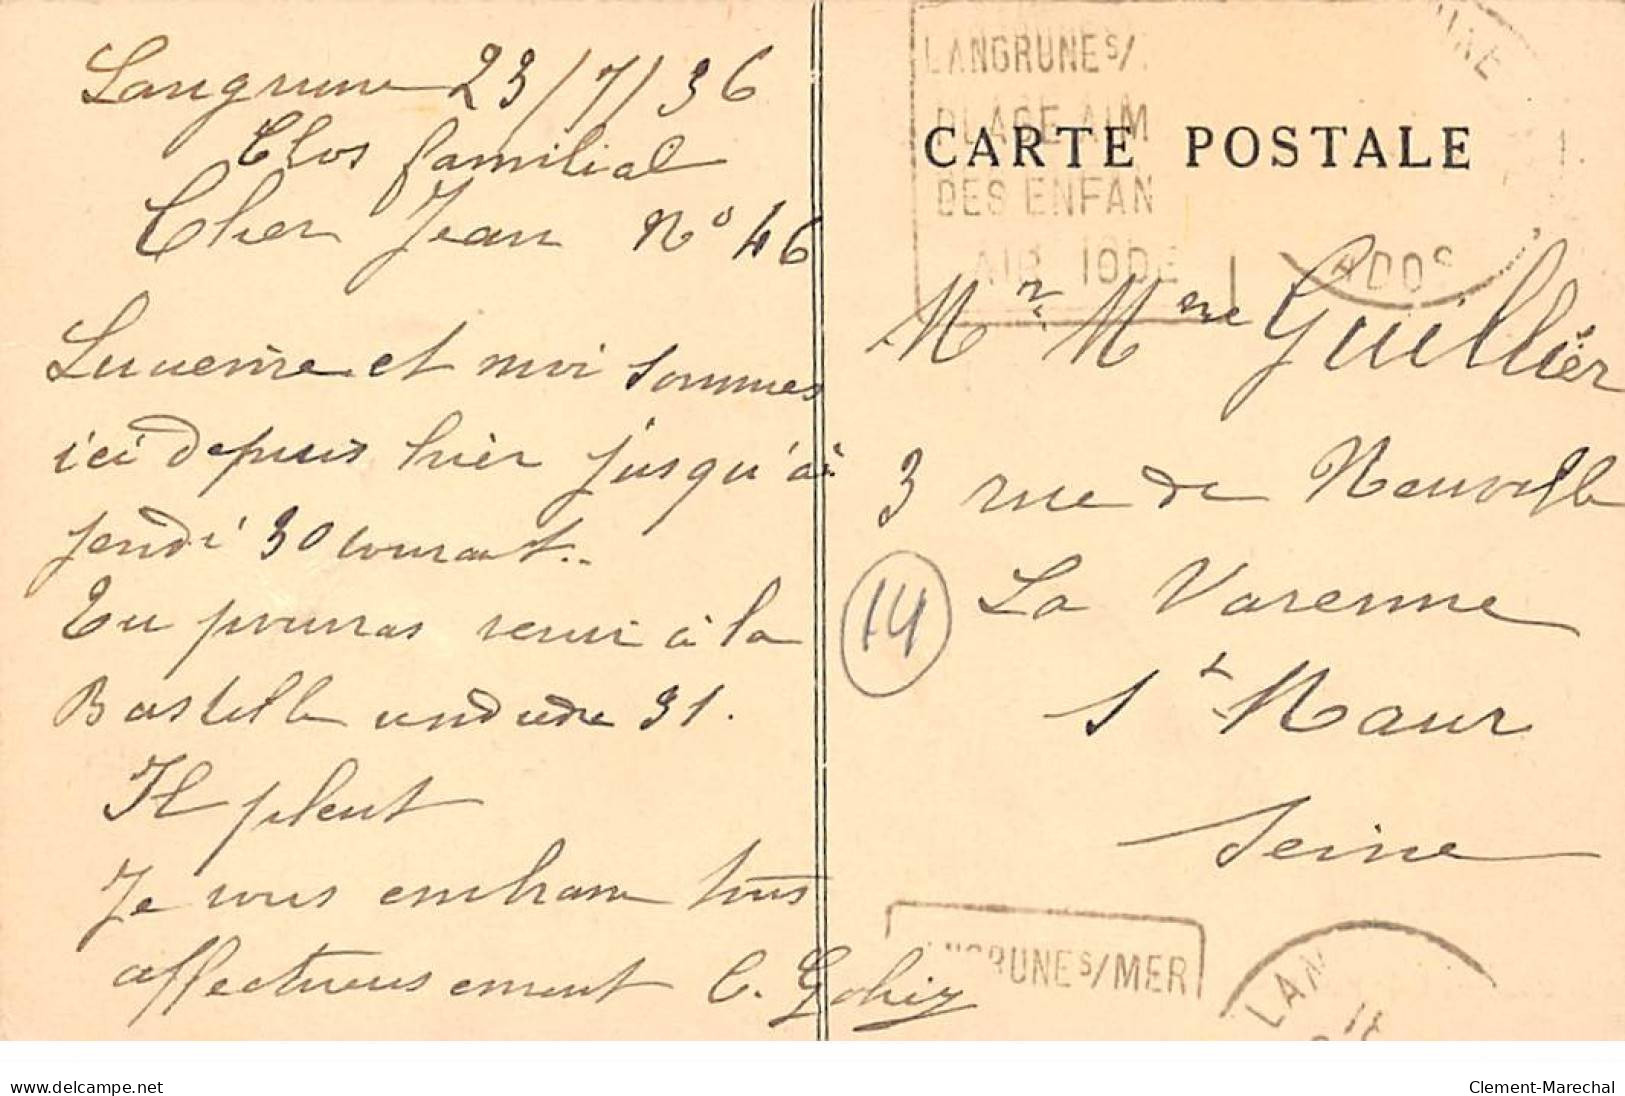 Langrune 23/7/36
Clos familial
Cher Jean N° 46
et moi sommes
ici depuis hier jusqu'à
jeudi 30 courant..
Tu pourras venir à la
Bastille vendredi 31.
Il pleut
Je vous embrasse tous
affectueusement C.
LANGRUNE S/
PLAGE AIM
DES ENFAN
AIR IODE
ADOS
CARTE POSTALE
Mr Mme Guillier
3 rue de Neuville
La Varenne
St Maur
Seine
14
NGRUNE S/MER
LAN
www.delcampe.net
Clement-Marechal